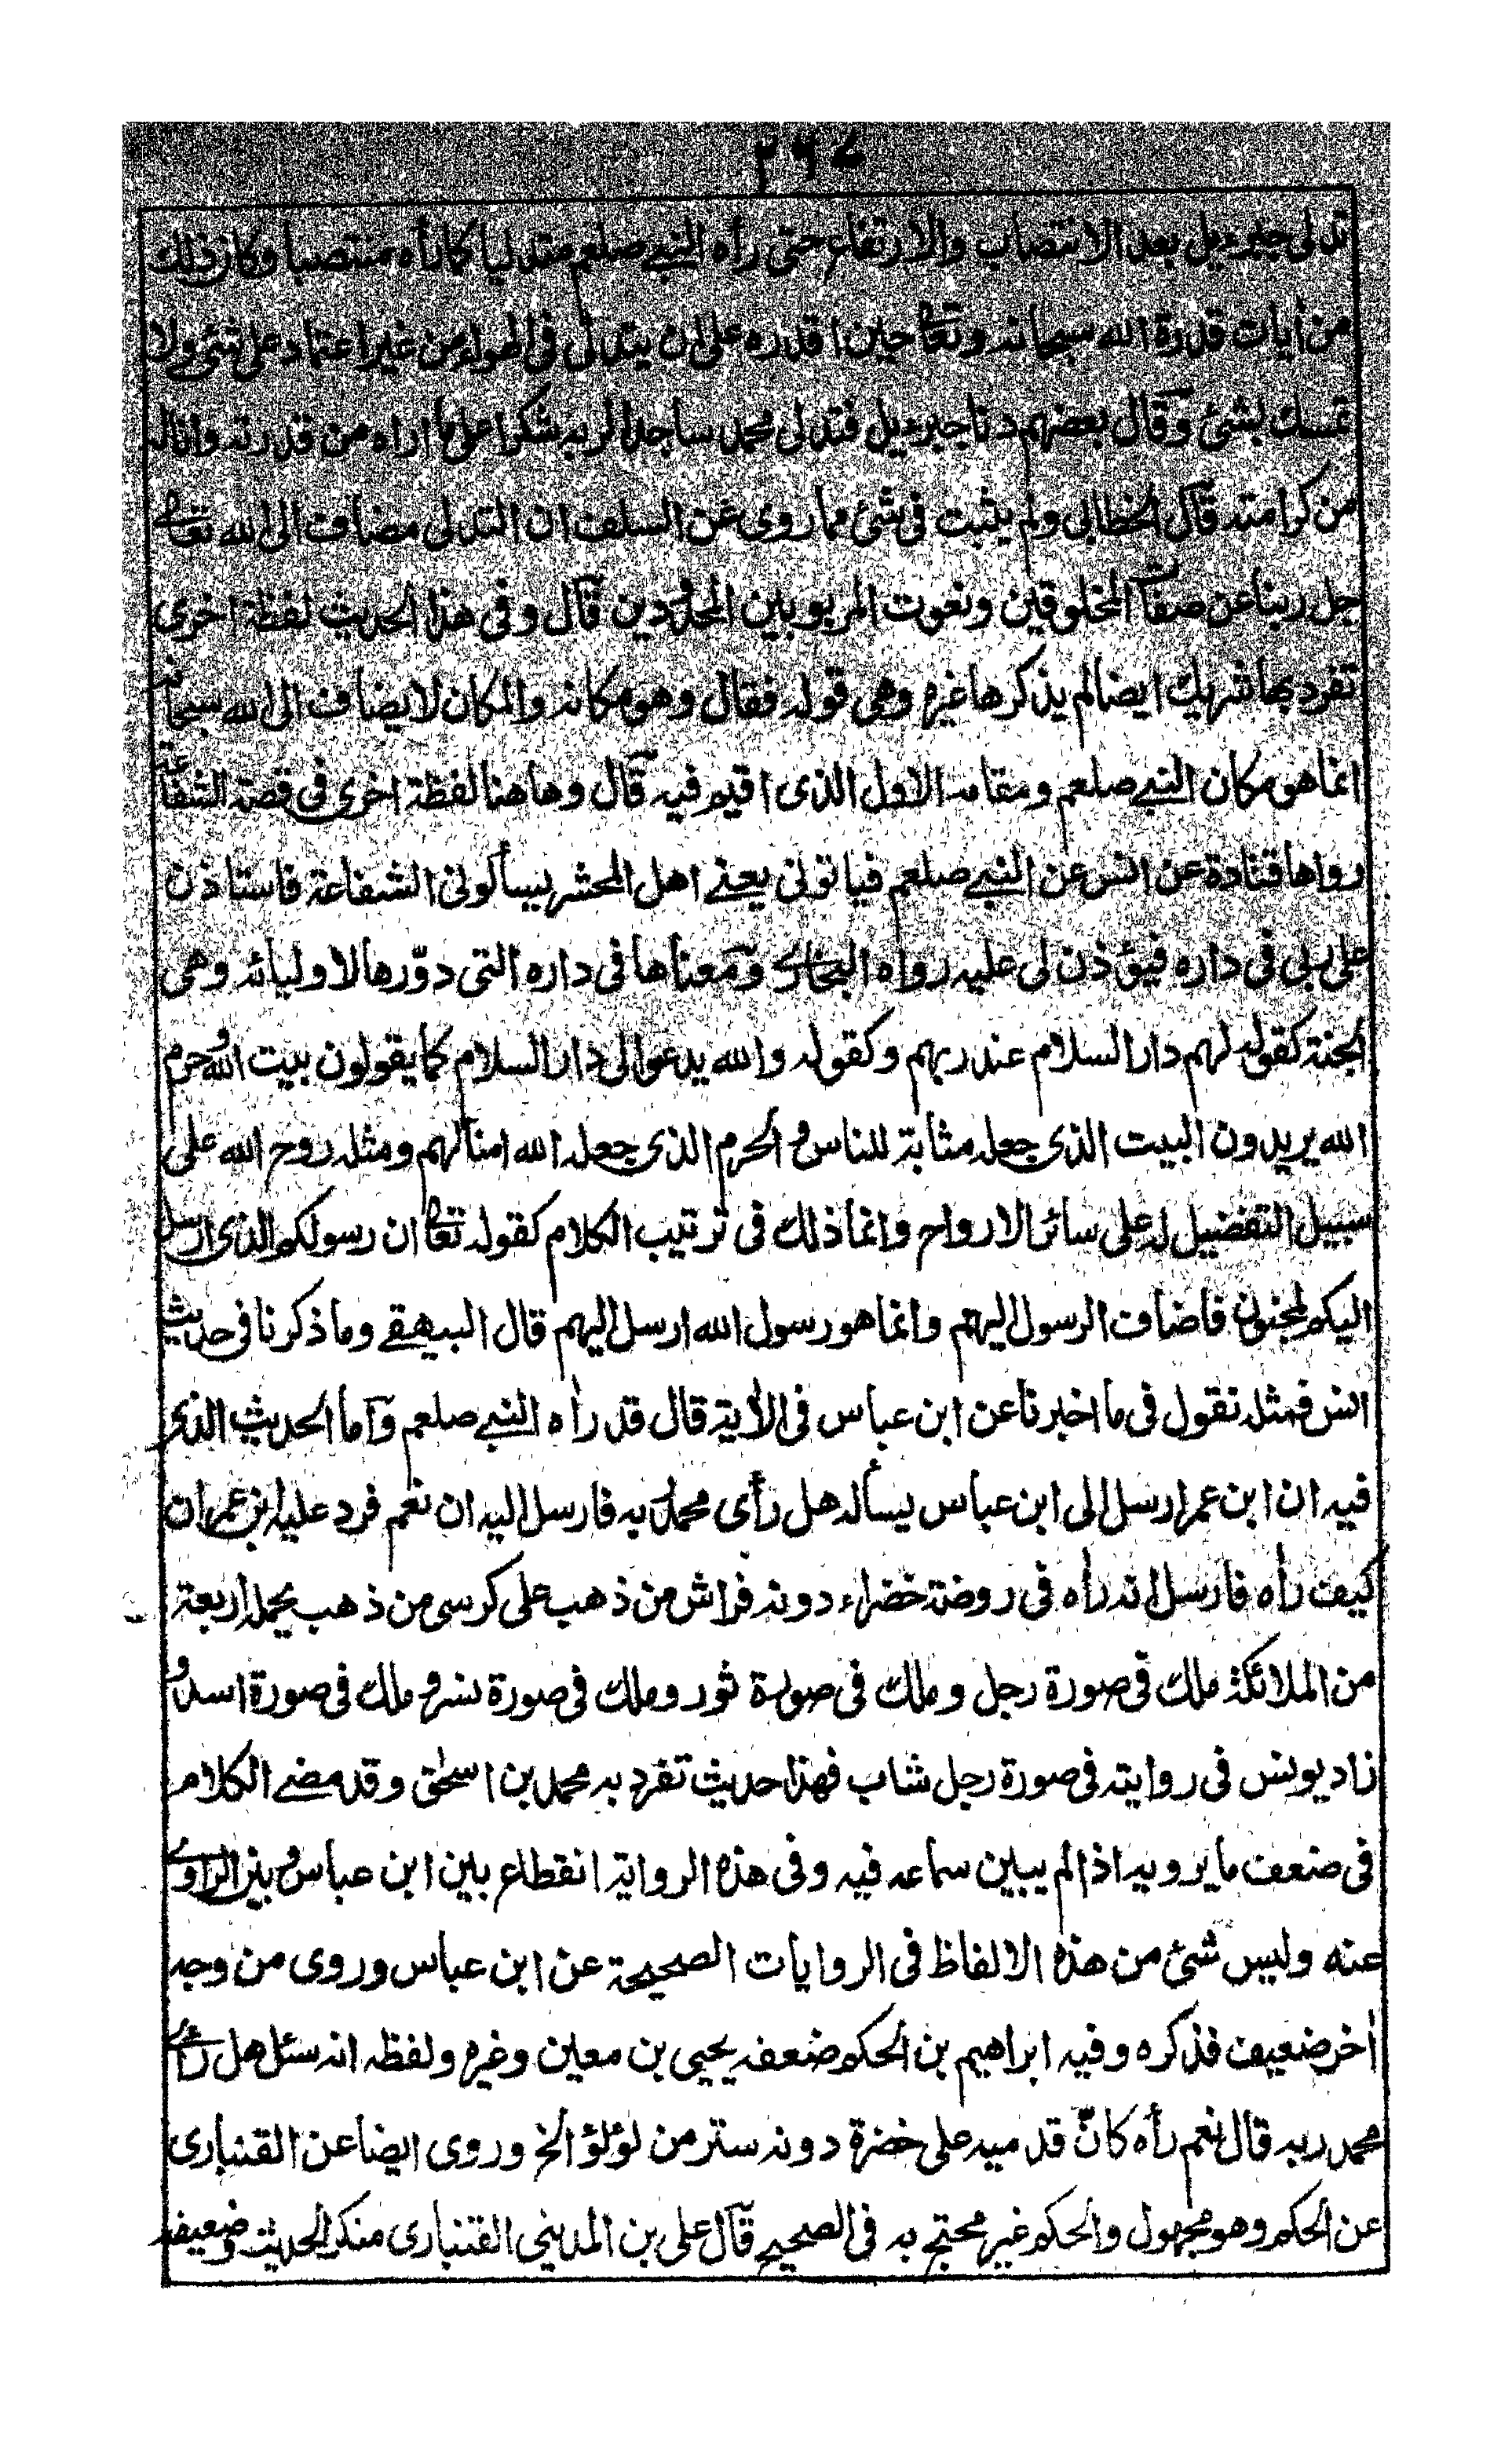 ٢٩٤
تدلى جبرءيل بعد الانتصاب والارتفاع حتى رأه النبي صلعم متدليا كما رأه منتصبا وكان ذلك
من أيات قدرة الله سبحانه وتعالى حين اقدره على ان يتدلى فى الهواء من غير اعتماد على شئ ولا
تمسك بشئ وقال بعضهم دنا جبرءيل فتدلى محمد ساجدا لربه شكرا على ما اراه من قدرته واناله
من كرامته قال الخطابى ولم يثبت فى شئ مما روى عن السلف ان التدلى مضاف الى الله تعالى
جل ربنا عن صفات المخلوقين ونعوت المربوبين المحدودين قال وفى هذا الحديث لفظة اخرى
تفرد بها شريك ايضا لم يذكرها غيره وهى قوله فقال وهو مكانه والمكان لا يضاف الى الله سبحانه
انما هو مكان النبي صلعم ومقامه الاول الذى اقيم فيه قال وهاهنا لفظة اخرى فى قصة الشفاعة
رواها قتادة عن انس عن النبي صلعم فياتونى يعنے اهل المحشر يسألونى الشفاعة فاستاذن
على ربى فى داره فيؤذن لى عليه رواه البخارى ومعناها فى داره التى دوّرها لاوليائه وهى
الجنة كقوله لهم دار السلام عند ربهم وكقوله والله يدعوا الى دار السلام كما يقولون بيت الله وحرم
الله يريدون البيت الذى جعله مثابة للناس والحرم الذى جعله الله امنا لهم ومثله روح الله على
سبيل التفضيل له على سائر الارواح وانما ذلك فى ترتيب الكلام كقوله تعالى ان رسولكم الذى ارسل
اليكم لمجنون فاضاف الرسول اليهم وانما هو رسول الله ارسل اليهم قال البيهقے وما ذكرنا فى حديث
انس فمثله نقول فى ما اخبرنا عن ابن عباس فى الأية قال قد رأه النبي صلعم وأما الحديث الذى
فيه ان ابن عمر ارسل الى ابن عباس يسأله هل رأى محمد ربه فارسل اليه ان نعم فرد عليه ابن عمر ان
كيف رأه فارسل انه رأه فى روضة خضراء دونه فراش من ذهب على كرسى من ذهب يحمله اربعة
من الملائكة ملك فى صورة رجل وملك فى صورة ثور وملك فى صورة نسر وملك فى صورة اسد و
زاد يونس فى روايته فى صورة رجل شاب فهذا حديث تفرد به محمد بن اسحٰق وقد مضے الكلام
فى ضعف ما يرويه اذا لم يبين سماعه فيه وفى هذه الرواية انقطاع بين ابن عباس وبين الراوے
عنه وليس شئ من هذه الالفاظ فى الروايات الصحيحة عن ابن عباس وروى من وجه
أخر ضعيف فذكره وفيه ابراهيم بن الحكم ضعفه يحيى بن معين وغيره ولفظه انه سئل هل رأے
محمد ربه قال نعم رأه كانّ قدميه على خضرة دونه ستر من لؤلؤ الخ وروى ايضا عن القنبارى
عن الحكم وهو مجهول والحكم غير محتج به فى الصحيح قال على بن المدينى القنبارى منكر الحديث وضعيفه